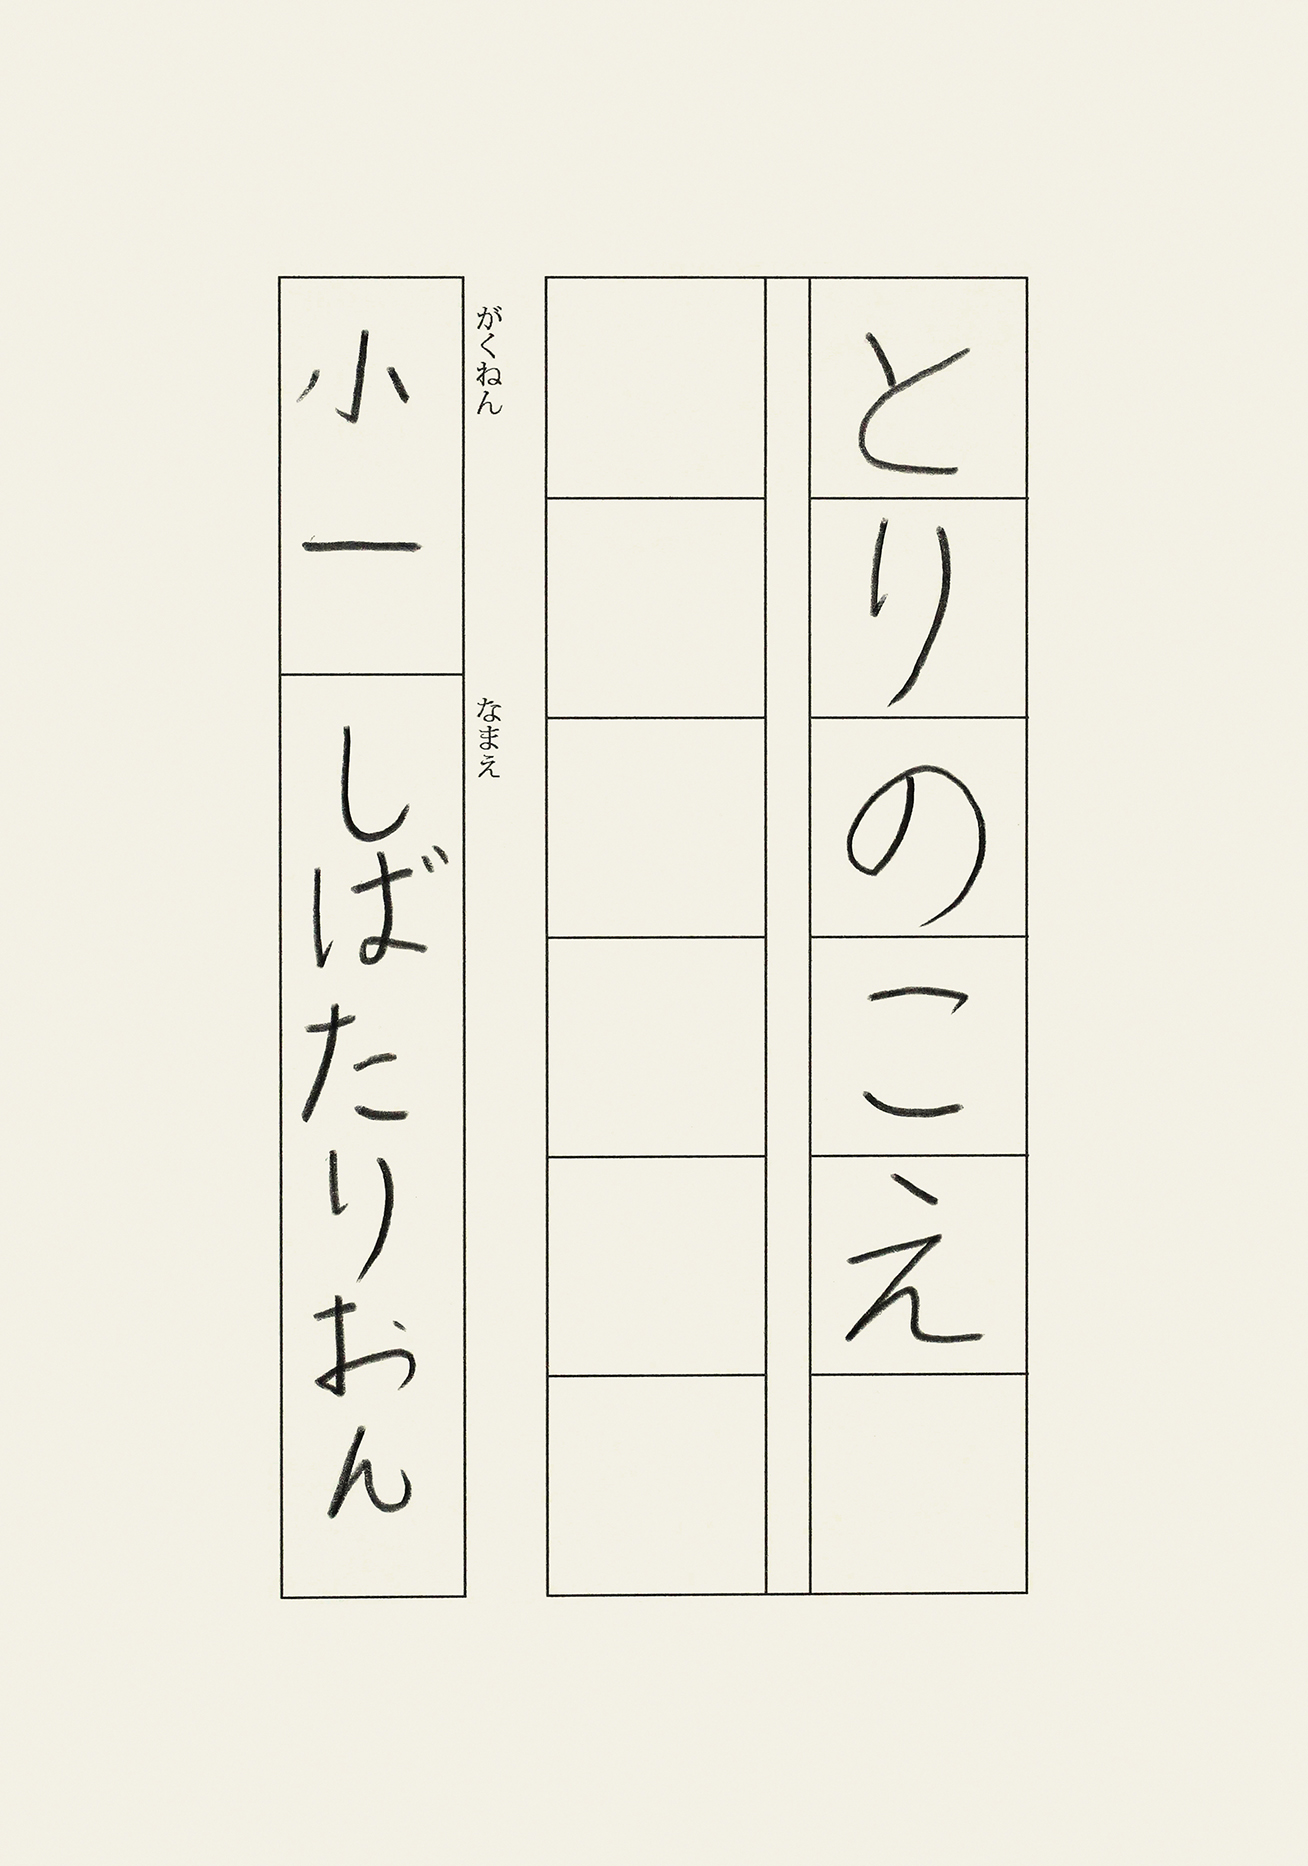 とりのこえ
がくねん
小一
なまえ
しばたりおん